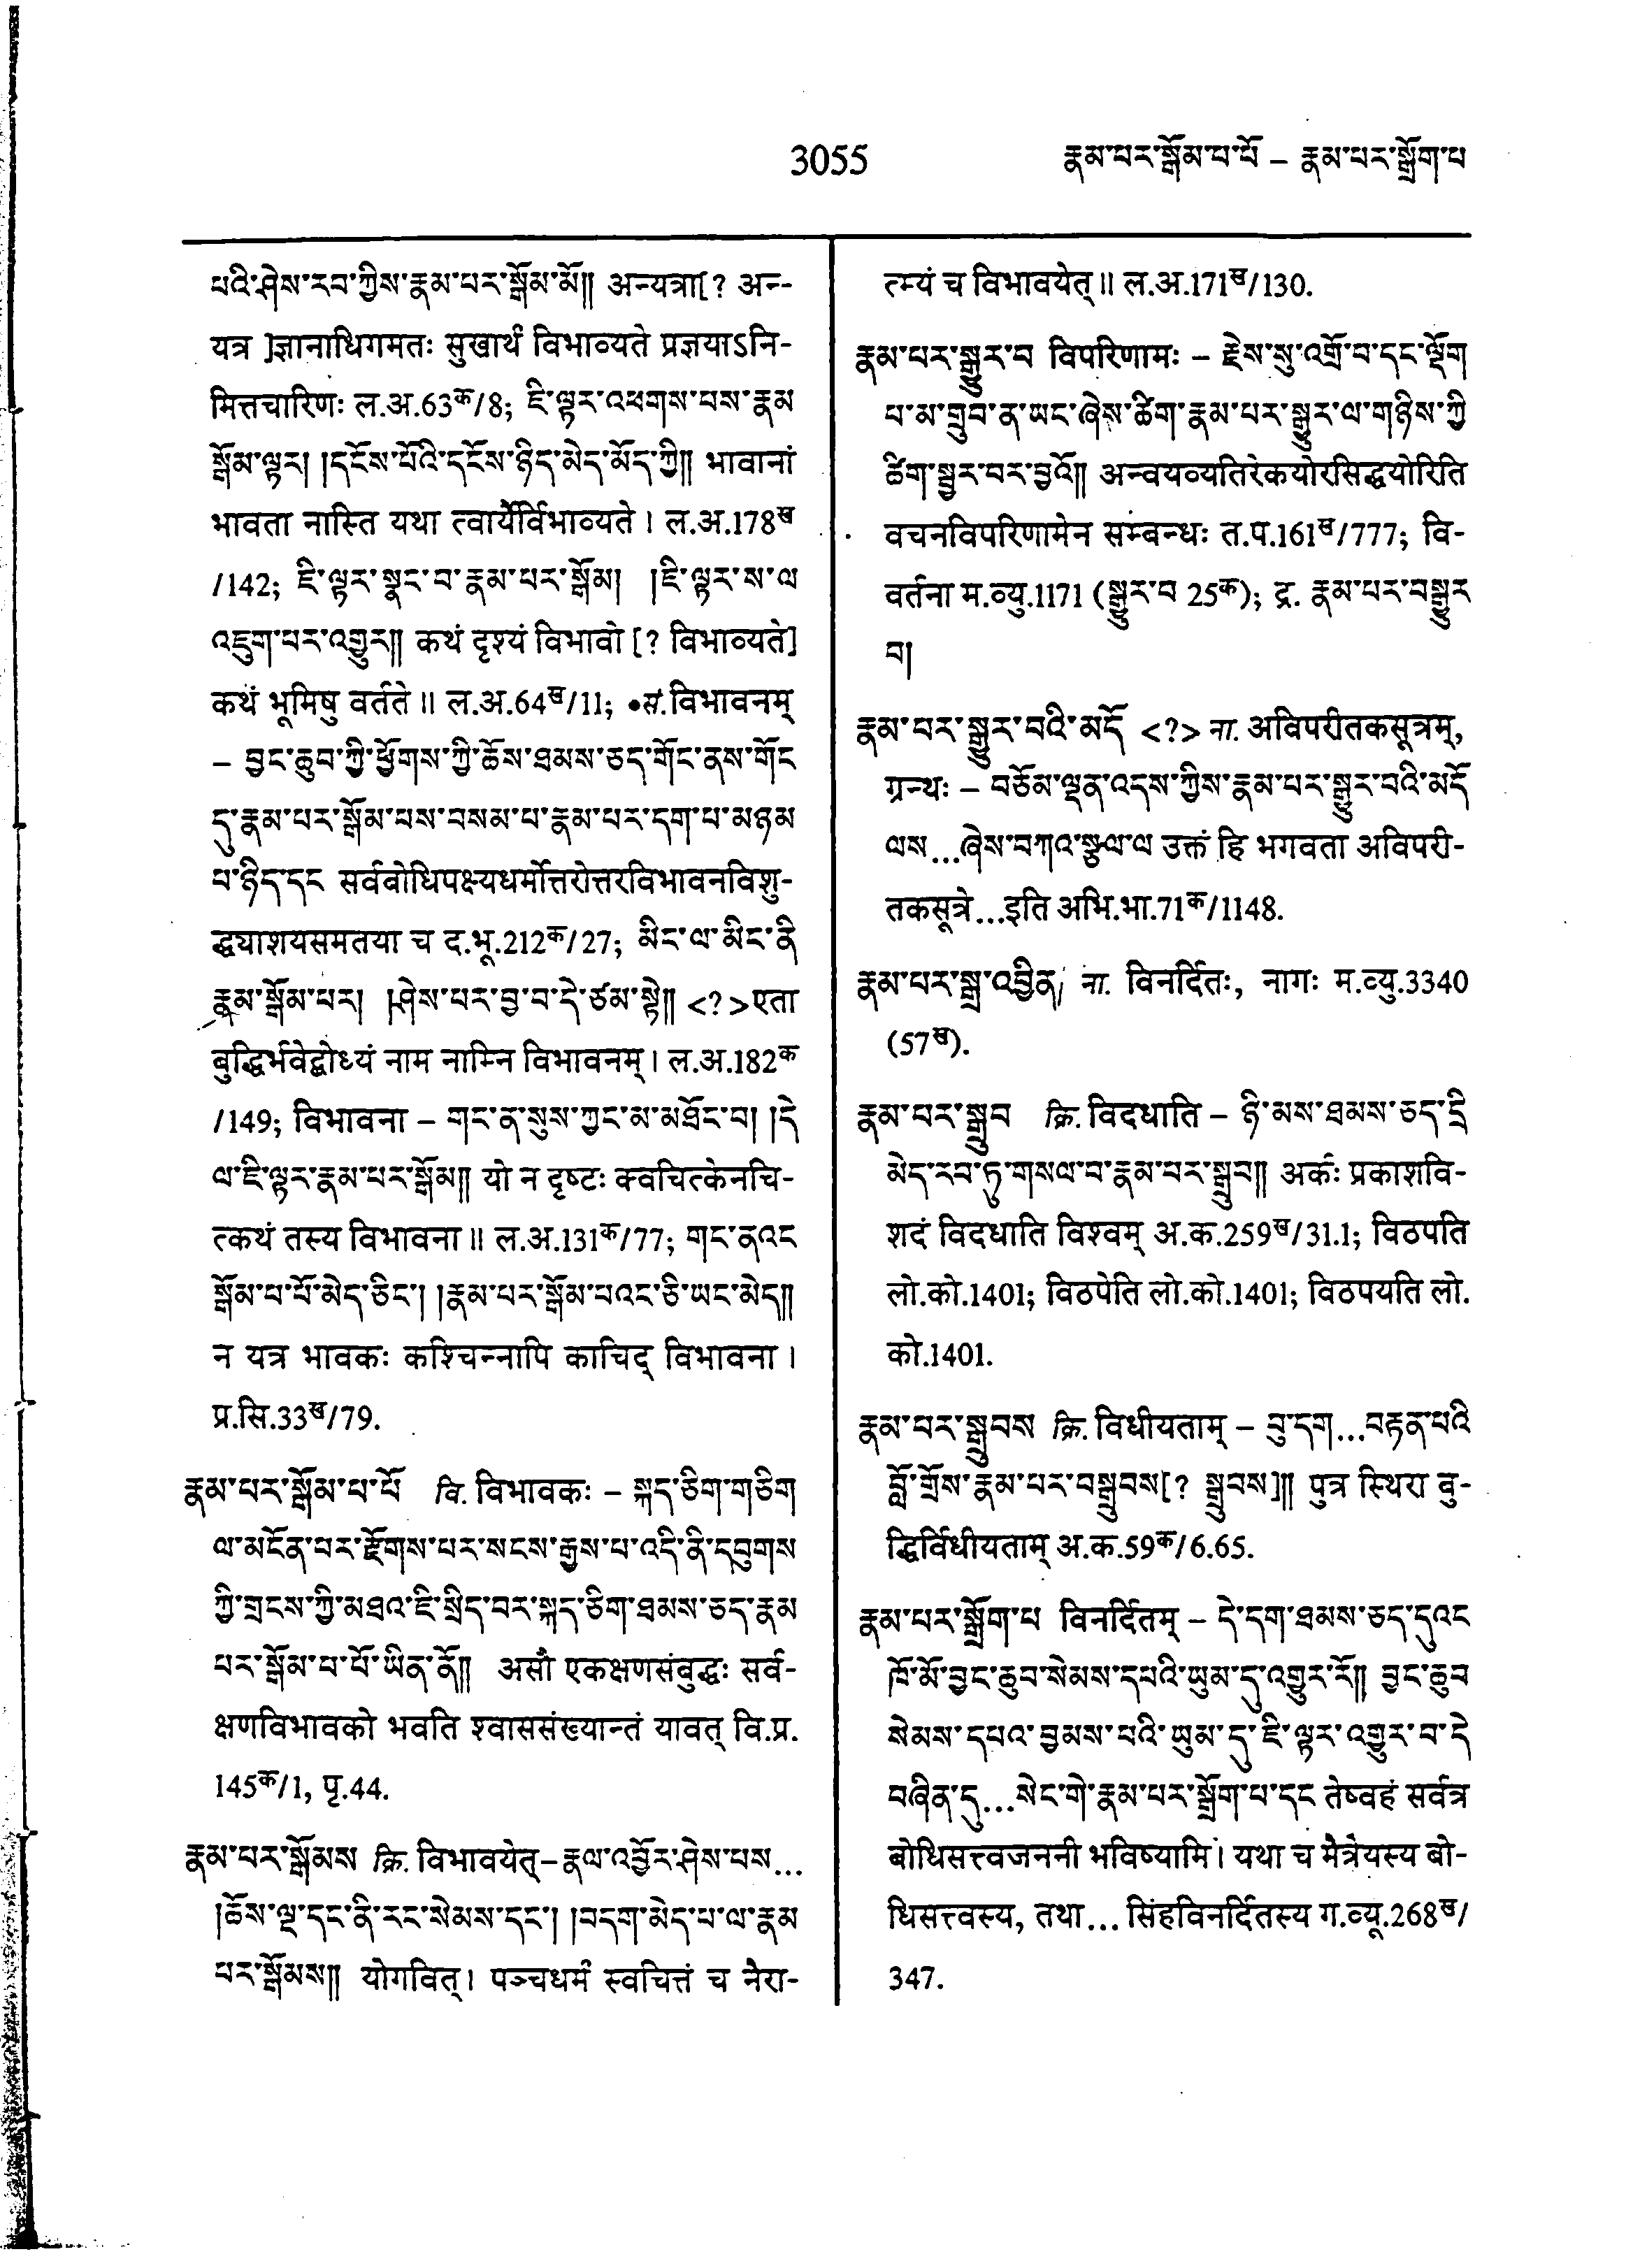 3055
རྣམ་པར་སྒོམ་པ་པོ – རྣམ་པར་སྒྲོག་པ
པའི་ཤེས་རབ་ཀྱིས་རྣམ་པར་སྒོམ་མོ།། अन्यत्रा[? अन-
यत्र ]ज्ञानाधिगमतः सुखार्थं विभाव्यते प्रज्ञयाऽनि-
मित्तचारिणः ल.अ.63क/8; ཇི་ལྟར་འཕགས་པས་རྣམ
སྒོམ་ལྟར། །དངོས་པོའི་དངོས་ཉིད་མེད་མོད་ཀྱི།། भावानां
भावता नास्ति यथा त्वार्यैर्विभाव्यते । ल.अ.178ख
/142; ཇི་ལྟར་སྣང་བ་རྣམ་པར་སྒོམ། །ཇི་ལྟར་ས་ལ
འཇུག་པར་འགྱུར།། कथं दृश्यं विभावो [? विभाव्यते]
कथं भूमिषु वर्तते ॥ ल.अ.64ख/11; •सं.विभावनम्
– བྱང་ཆུབ་ཀྱི་ཕྱོགས་ཀྱི་ཆོས་ཐམས་ཅད་གོང་ནས་གོང
དུ་རྣམ་པར་སྒོམ་པས་བསམ་པ་རྣམ་པར་དག་པ་མཉམ
པ་ཉིད་དང सर्वबोधिपक्ष्यधर्मोत्तरोत्तरविभावनविशु-
द्ध्याशयसमतया च द.भू.212क/27; མིང་ལ་མིང་ནི
རྣམ་སྒོམ་པར། །ཤེས་པར་བྱ་བ་དེ་ཙམ་སྟེ།། <?>एता
बुद्धिर्भवेद्बोध्यं नाम नाम्नि विभावनम् । ल.अ.182क
/149; विभावना – གང་ན་སུས་ཀྱང་མ་མཐོང་བ། །དེ
ལ་ཇི་ལྟར་རྣམ་པར་སྒོམ།། यो न दृष्टः क्वचित्केनचि-
त्कथं तस्य विभावना ॥ ल.अ.131क/77; གང་ནའང
སྒོམ་པ་པོ་མེད་ཅིང་། །རྣམ་པར་སྒོམ་པའང་ཅི་ཡང་མེད།།
न यत्र भावकः कश्चिन्नापि काचिद् विभावना ।
प्र.सि.33ख/79.
རྣམ་པར་སྒོམ་པ་པོ वि. विभावकः – སྐད་ཅིག་གཅིག
ལ་མངོན་པར་རྫོགས་པར་སངས་རྒྱས་པ་འདི་ནི་དབུགས
ཀྱི་གྲངས་ཀྱི་མཐའ་ཇི་སྲིད་བར་སྐད་ཅིག་ཐམས་ཅད་རྣམ
པར་སྒོམ་པ་པོ་ཡིན་ནོ།། असौ एकक्षणसंबुद्धः सर्व-
क्षणविभावको भवति श्वाससंख्यान्तं यावत् वि.प्र.
145क/1, पृ.44.
རྣམ་པར་སྒོམས क्रि. विभावयेत् – རྣལ་འབྱོར་ཤེས་པས…
།ཆོས་ལྔ་དང་ནི་རང་སེམས་དང་། །བདག་མེད་པ་ལ་རྣམ
པར་སྒོམས།། योगवित् । पञ्चधर्मं स्वचित्तं च नैरा-
त्म्यं च विभावयेत् ॥ ल.अ.171ख/130.
རྣམ་པར་སྒྱུར་བ विपरिणामः – རྗེས་སུ་འགྲོ་བ་དང་ལྡོག
པ་མ་གྲུབ་ན་ཡང་ཞེས་ཚིག་རྣམ་པར་སྒྱུར་ལ་གཉིས་ཀྱི
ཚིག་སྦྱར་བར་བྱའོ།། अन्वयव्यतिरेकयोरसिद्धयोरिति
वचनविपरिणामेन सम्बन्धः त.प.161ख/777; वि-
वर्तना म.व्यु.1171 (སྒྱུར་བ 25क); द्र. རྣམ་པར་བསྒྱུར
བ།
རྣམ་པར་སྒྱུར་བའི་མདོ <?> ना. अविपरीतकसूत्रम्,
ग्रन्थः – བཅོམ་ལྡན་འདས་ཀྱིས་རྣམ་པར་སྒྱུར་བའི་མདོ
ལས…ཞེས་བཀའ་སྩལ་ལ उक्तं हि भगवता अविपरी-
तकसूत्रे…इति अभि.भा.71क/1148.
རྣམ་པར་སྒྲ་འབྱིན། ना. विनर्दितः, नागः म.व्यु.3340
(57ख).
རྣམ་པར་སྒྲུབ क्रि. विदधाति – ཉི་མས་ཐམས་ཅད་དྲི
མེད་རབ་ཏུ་གསལ་བ་རྣམ་པར་སྒྲུབ།། अर्कः प्रकाशवि-
शदं विदधाति विश्वम् अ.क.259ख/31.1; विठपति
लो.को.1401; विठपेति लो.को.1401; विठपयति लो.
को.1401.
རྣམ་པར་སྒྲུབས क्रि. विधीयताम् – བུ་དག…བརྟན་པའི
བློ་གྲོས་རྣམ་པར་བསྒྲུབས[? སྒྲུབས]།། पुत्र स्थिरा बु-
द्धिर्विधीयताम् अ.क.59क/6.65.
རྣམ་པར་སྒྲོག་པ विनर्दितम् – དེ་དག་ཐམས་ཅད་དུའང
ཁོ་མོ་བྱང་ཆུབ་སེམས་དཔའི་ཡུམ་དུ་འགྱུར་རོ།། བྱང་ཆུབ
སེམས་དཔའ་བྱམས་པའི་ཡུམ་དུ་ཇི་ལྟར་འགྱུར་བ་དེ
བཞིན་དུ…སེང་གེ་རྣམ་པར་སྒྲོག་པ་དང तेष्वहं सर्वत्र
बोधिसत्त्वजननी भविष्यामि । यथा च मैत्रेयस्य बो-
धिसत्त्वस्य, तथा… सिंहविनर्दितस्य ग.व्यू.268ख/
347.